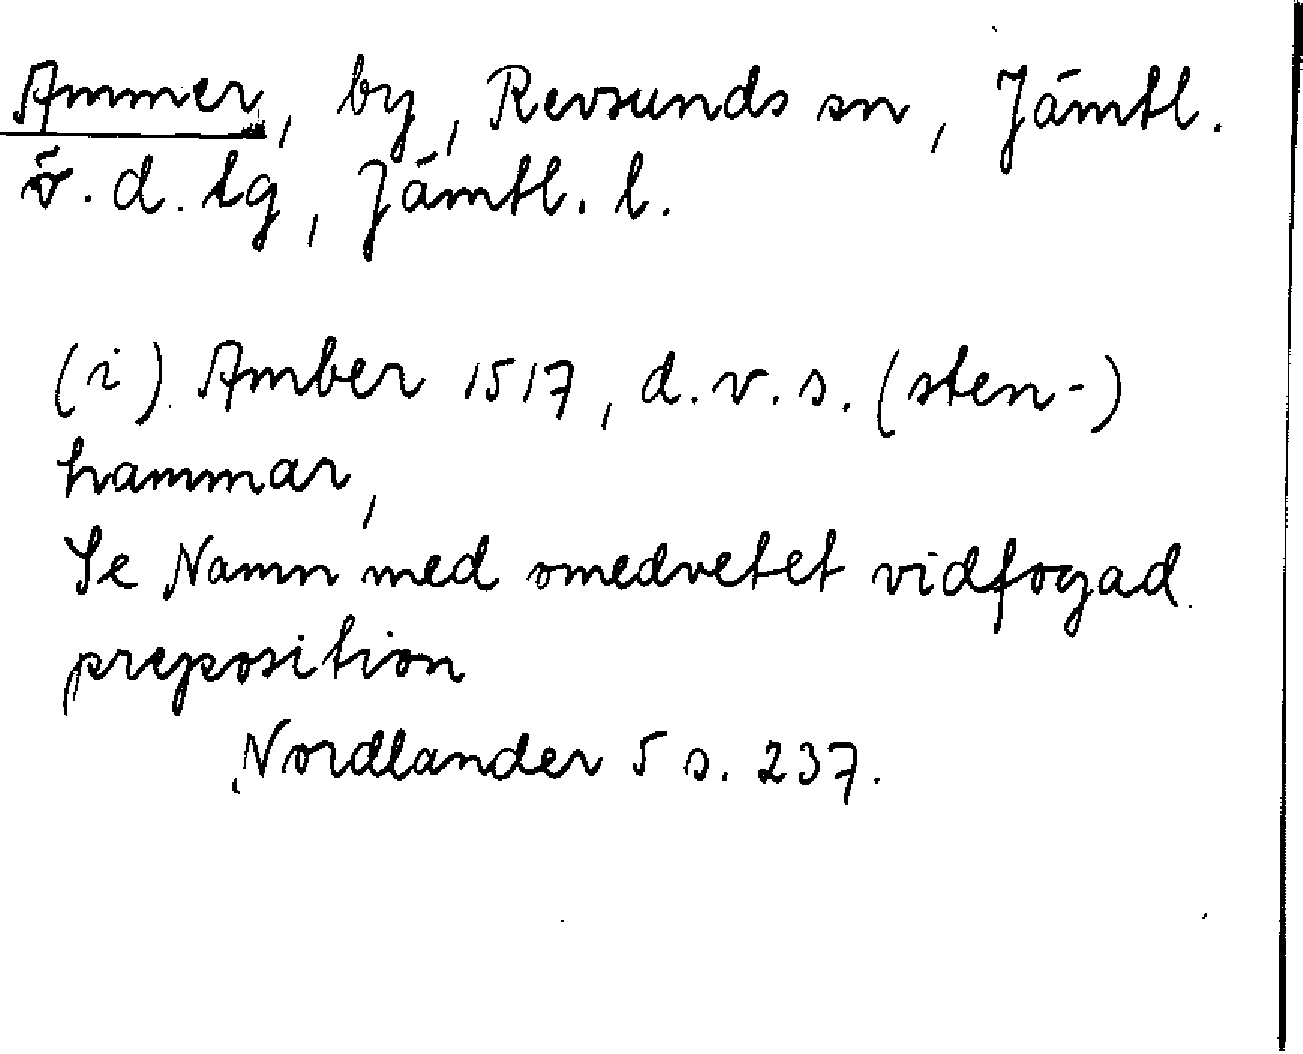 Ammer, by, Revsunds sn, Jämtl.
ö. d. lg, Jämtl. l.
(i) Amber 1517, d.v.s. (sten-)
hammar,
Se Namn med omedvetet vidfogad
preposition
Nordlander 5 s. 237.